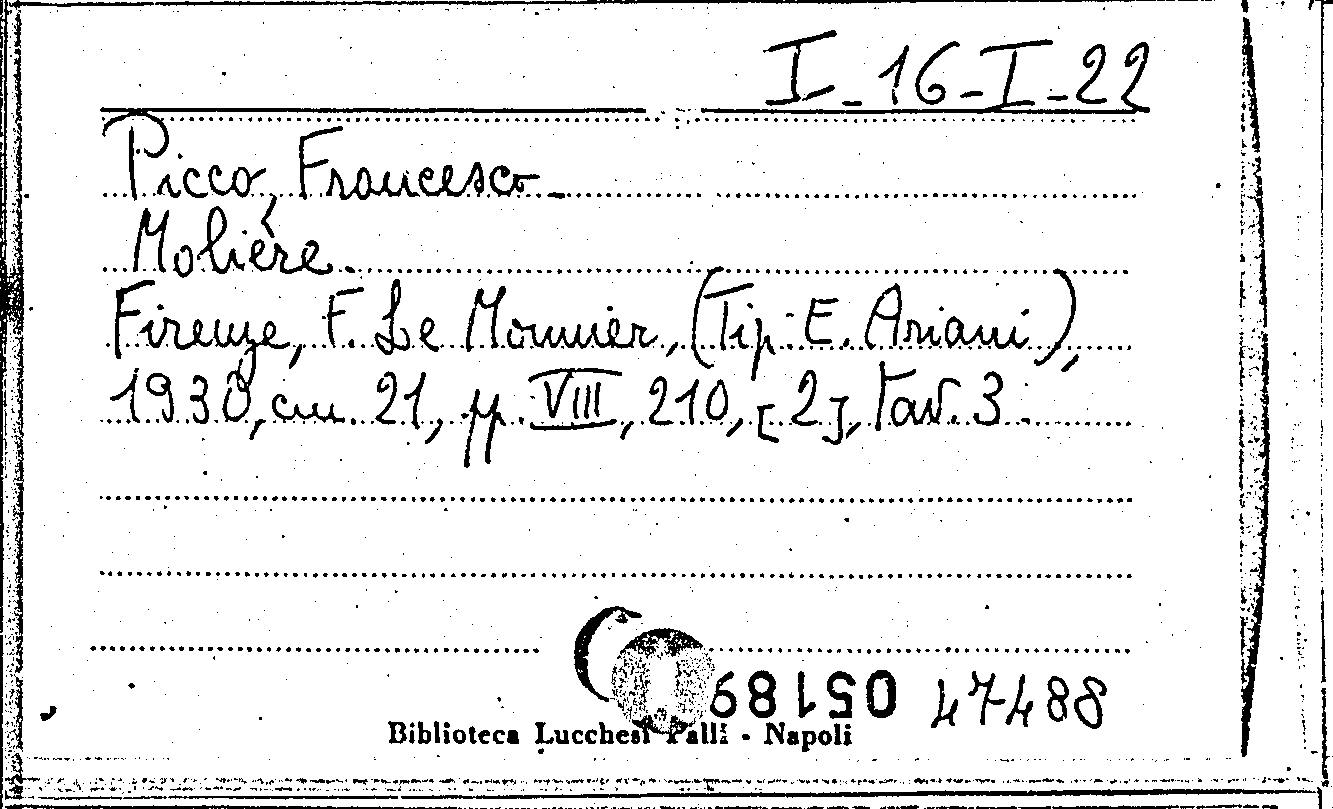 I-16-I-22
Picco, Francesco.
Molière.
Firenze, F. Le Monnier, (Tip. E. Ariani),
1930, cm. 21, pp. VIII, 210, [2], tav. 3.
05189 47488
Biblioteca Lucchesi Palli - Napoli